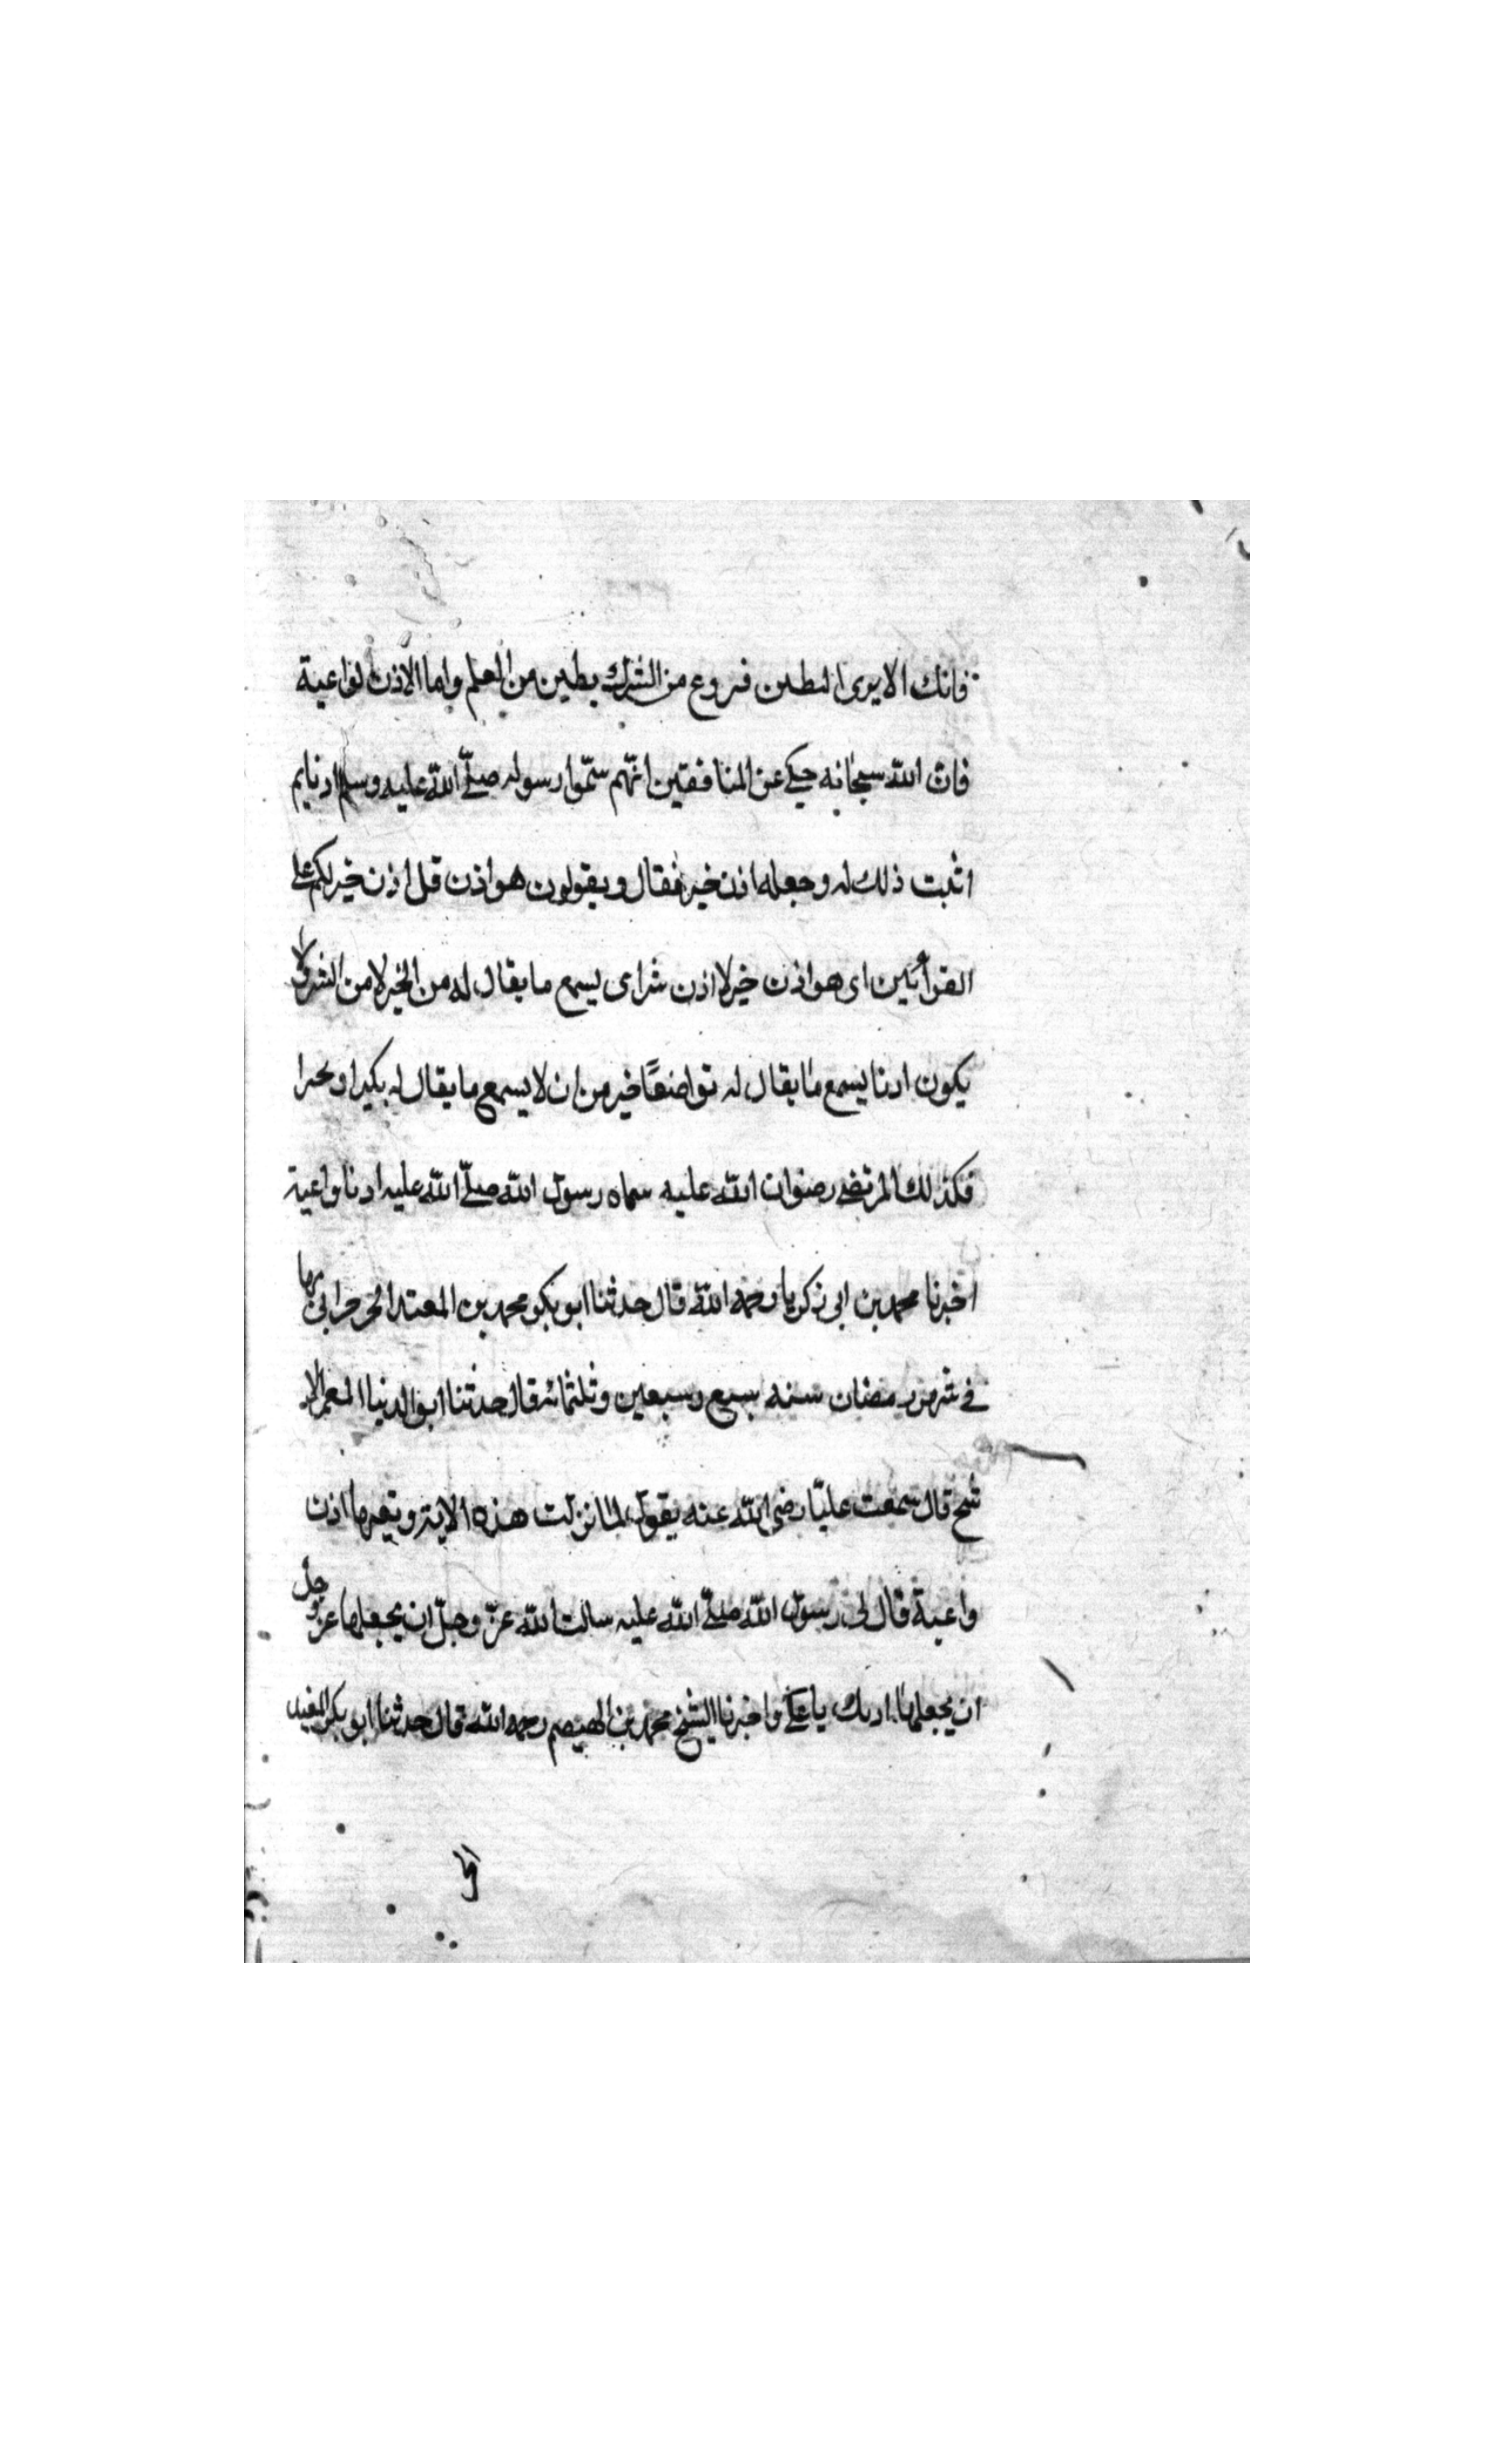 فانك الايرى البطين فروع من الشرك بطين من العلم واما الاذن الواعية
فان الله سبحانه حكى عن المنافقين انهم سمّوا رسوله صلى الله عليه وسلم اذنا ثم
اثبت ذلك له وجعله اذن خير فقال ويقولون هو اذن قل اذن خير لكم على
القرائتين اى هو اذن خير لا اذن شر اى يسمع ما يقال له من الخير لا من الشر ولا
يكون اذنا يسمع ما يقال له تواضعًا خير من ان لا يسمع ما يقال له
فكذلك المرتضى رضوان الله عليه سماه رسول الله صلى الله عليه اذنا واعية
اخبرنا محمد بن ابى زكريا رحمه الله قال حدثنا ابو بكر محمد بن
فى شهر رمضان سنه سبع وسبعين وثلثمائه قال حدثنا ابو الدنيا المعمر الا
شج قال سمعت عليّا رضى الله عنه يقول لما نزلت هذه الاية وتعيها اذن
واعية قال لى رسول الله صلى الله عليه سالت الله عزّ وجلّ ان يجعلها عز وجل
ان يجعلها اذنك يا على واخبرنا الشيخ محمد بن الهيصم رحمه الله قال حدثنا ابو بكر المفيد